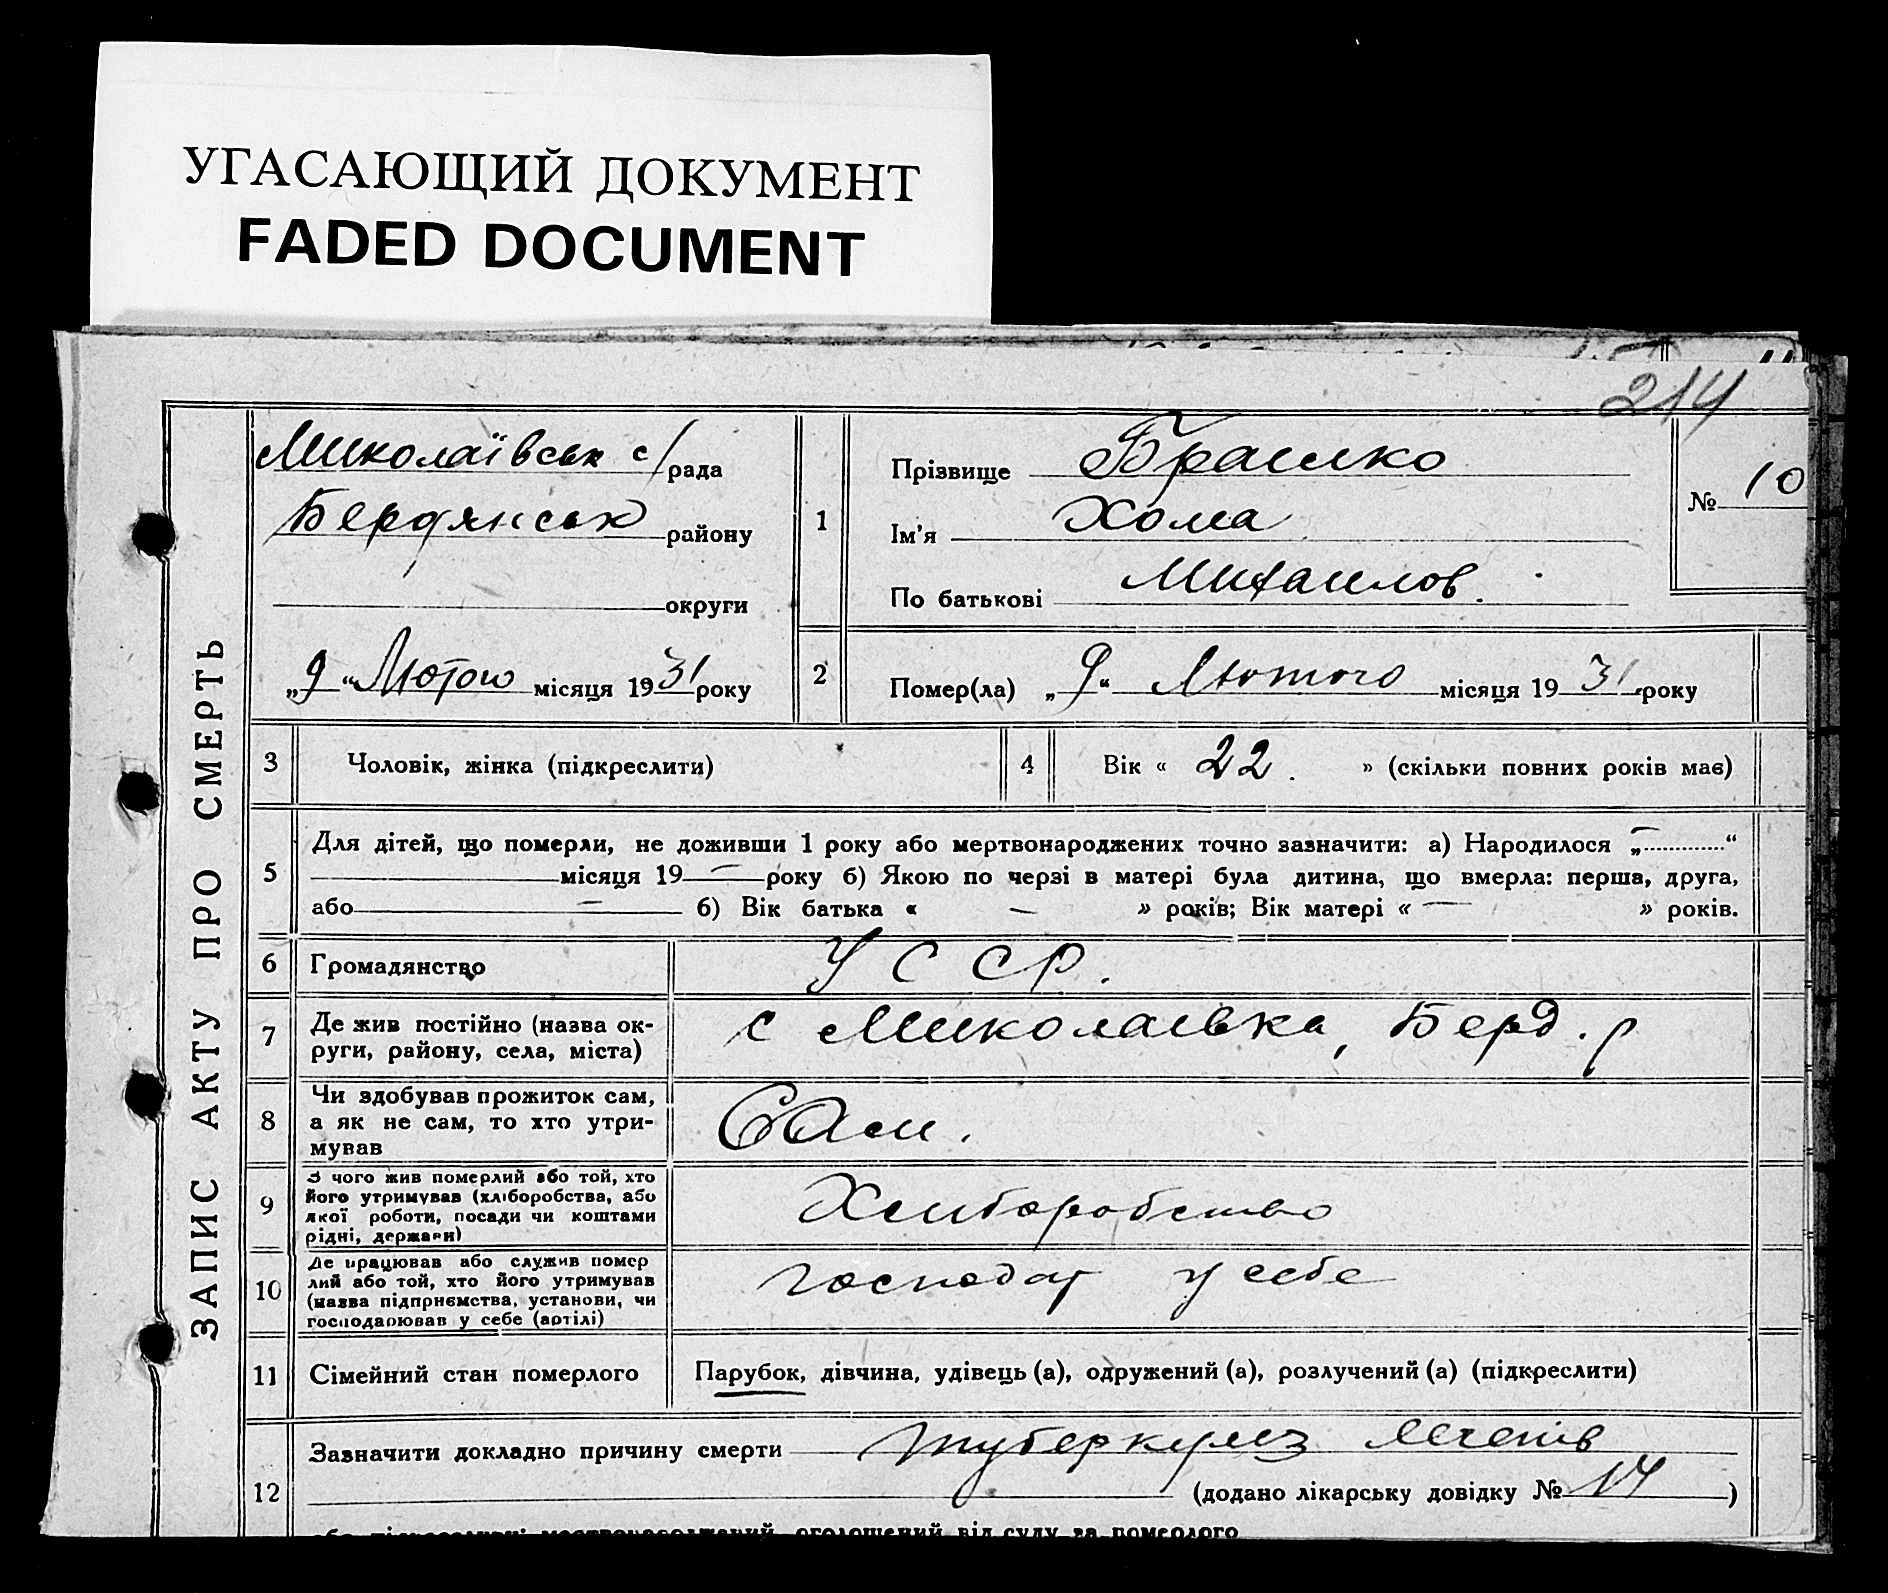 УГАСАЮЩИЙ ДОКУМЕНТ
FADED DOCUMENT
214
ЗАПИС АКТУ ПРО СМЕРТЬ
Миколаївськ с/рада
Бердянськ району
округи
„9“ Лютого місяця 1931 року
1
Прізвище Брашко
Ім'я Хома
По батькові Михаилов.
№ 10
2
Помер(ла) „9“ Лютого місяця 1931 року
3 Чоловік, жінка (підкреслити)
4 Вік « 22. » (скільки повних років має)
5
Для дітей, що померли, не доживши 1 року або мертвонароджених точно зазначити: а) Народилося „—“
місяця 19 — року б) Якою по черзі в матері була дитина, що вмерла: перша, друга,
або — б) Вік батька « — » років; Вік матері « — » років.
6 Громадянство УССР.
7 Де жив постійно (назва ок-
руги, району, села, міста)
с Миколаівка, Берд. р
8 Чи здобував прожиток сам,
а як не сам, то хто утри-
мував
Сам.
9 З чого жив померлий або той, хто
його утримував (хліборобства, або
якої роботи, посади чи коштами
рідні, держави)
Хлиборобство
10 Де працював або служив помер
лий або той, хто його утримував
(назва підприємства, установи, чи
господарював у себе (артілі)
господар у себе
11 Сімейний стан померлого Парубок, дівчина, удівець (а), одружений (а), розлучений (а) (підкреслити)
12
Зазначити докладно причину смерти туберкульз легенів
(додано лікарську довідку № 14 )
мертвонароджений, оголошений від суду за померлого